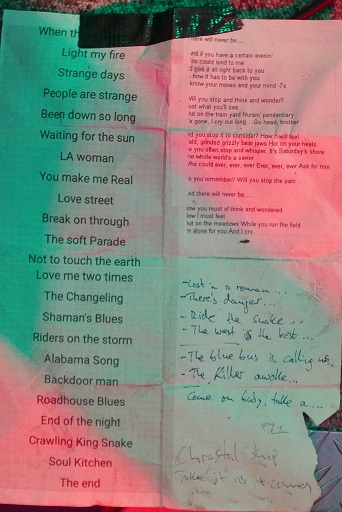 When th
Light my fire
Strange days
People are strange
Been down so long
Waiting for the sun
LA woman
You make me Real
Love street
Break on through
The soft Parade
Not to touch the earth
Love me two times
The Changeling
Shaman's Blues
Riders on the storm
Alabama Song
Backdoor man
Roadhouse Blues
End of the night
Crawling King Snake
Soul Kitchen
The end
there will never be....
nd if you have a certain evenin'
ou could lend to me
d give it all right back to you
how it has to be with you
know your moves and your mind -7x
Will you stop and think and wonder?
ust what you'll see
ut on the train yard Nursin' penitentiary
s gone, I cry out long... Go head, brother
id you stop it to consider? How it will feel
old, grinded grizzly bear jaws Hot on your heels
o you often stop and whisper, It's Saturday's shore
he whole world's a savior
Who could ever, ever, ever Ever, ever, ever Ask for mor
o you remember? Will you stop the pain
nd there will never be.....
ow you must of think and wondered
ow I must feel
ut on the meadows While you run the field
m alone for you And I cry
-Lost in a roman...
-There's danger...
- Ride the snake...
- The west is the best...
-The blue bus is calling us.
- The Killer awoke...
Come on baby, take a...
Christal ship
Take it as it comes